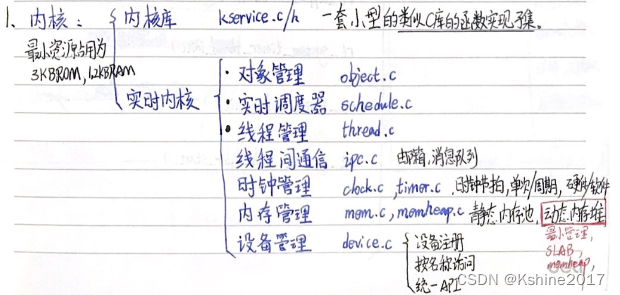 1. 内核: 内核库 kservice.c/h 一套小型的类似C库的函数实现子集。
最小资源占用为
3KBROM, 1.2KBRAM
实时内核
· 对象管理 object.c
· 实时调度器 schedule.c
· 线程管理 thread.c
线程间通信 ipc.c 邮箱,消息队列
时钟管理 clock.c, timer.c 时钟节拍,单次/周期,硬件/软件
内存管理 mem.c, memheap.c 静态内存池, 动态内存堆
最小管理,
SLAB,
memheap,
设备管理 device.c 设备注册
按名称访问
统一API
CSDN @Kshine2017